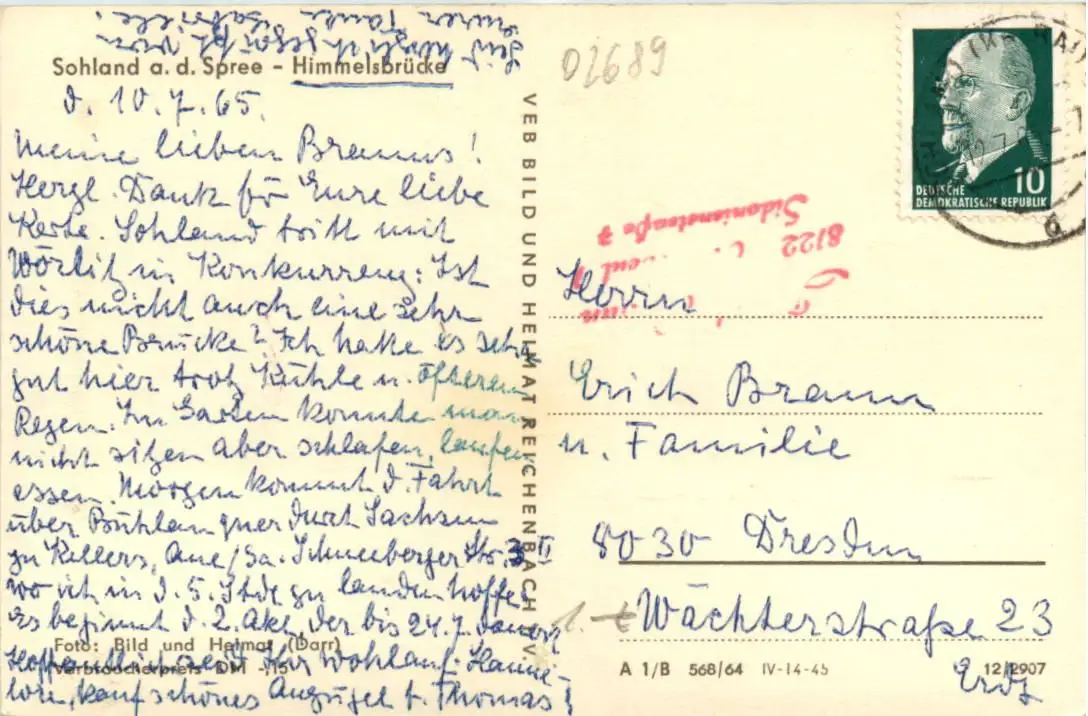 Sohland a. d. Spree – Himmelsbrücke
d. 10.7.65.
Meine lieben Brauns!
Herzl. Dank für Eure liebe
Karte. Sohland tritt mit
Wörlitz in Konkurrenz: Ist
dies nicht auch eine sehr
schöne Brücke? Ich hatte es sehr
gut hier trotz Kühle u. öfterem
Regen. Im Garten konnte man
nicht sitzen aber schlafen, laufen
essen. Morgen kommt d. Fahrt
über Bühlau quer durch Sachsen
zu Kellers, Aue/Sa. Schneeberger Str.
wo ich in d. 5. Stde zu landen hoffe.
Es beginnt d. 2. Akt, der bis 24.7. dauert
Hoffentlich seid Ihr wohlauf. Hanne-
lore, kauf schönes Anzügel f. Thomas!
Seid herzlich gegrüßt von
Eurer Tante
Foto: Bild und Heimat (Darr)
Verbraucherpreis DM -,15
VEB BILD UND HEIMAT REICHENBACH V
02689
DEUTSCHE
DEMOKRATISCHE REPUBLIK
10
8122
Sidonienstraße 7
Herrn
Erich Braun
u. Familie
8030 Dresden
Wächterstraße 23
Erdg
A 1/B 568/64 IV-14-45 12/2907